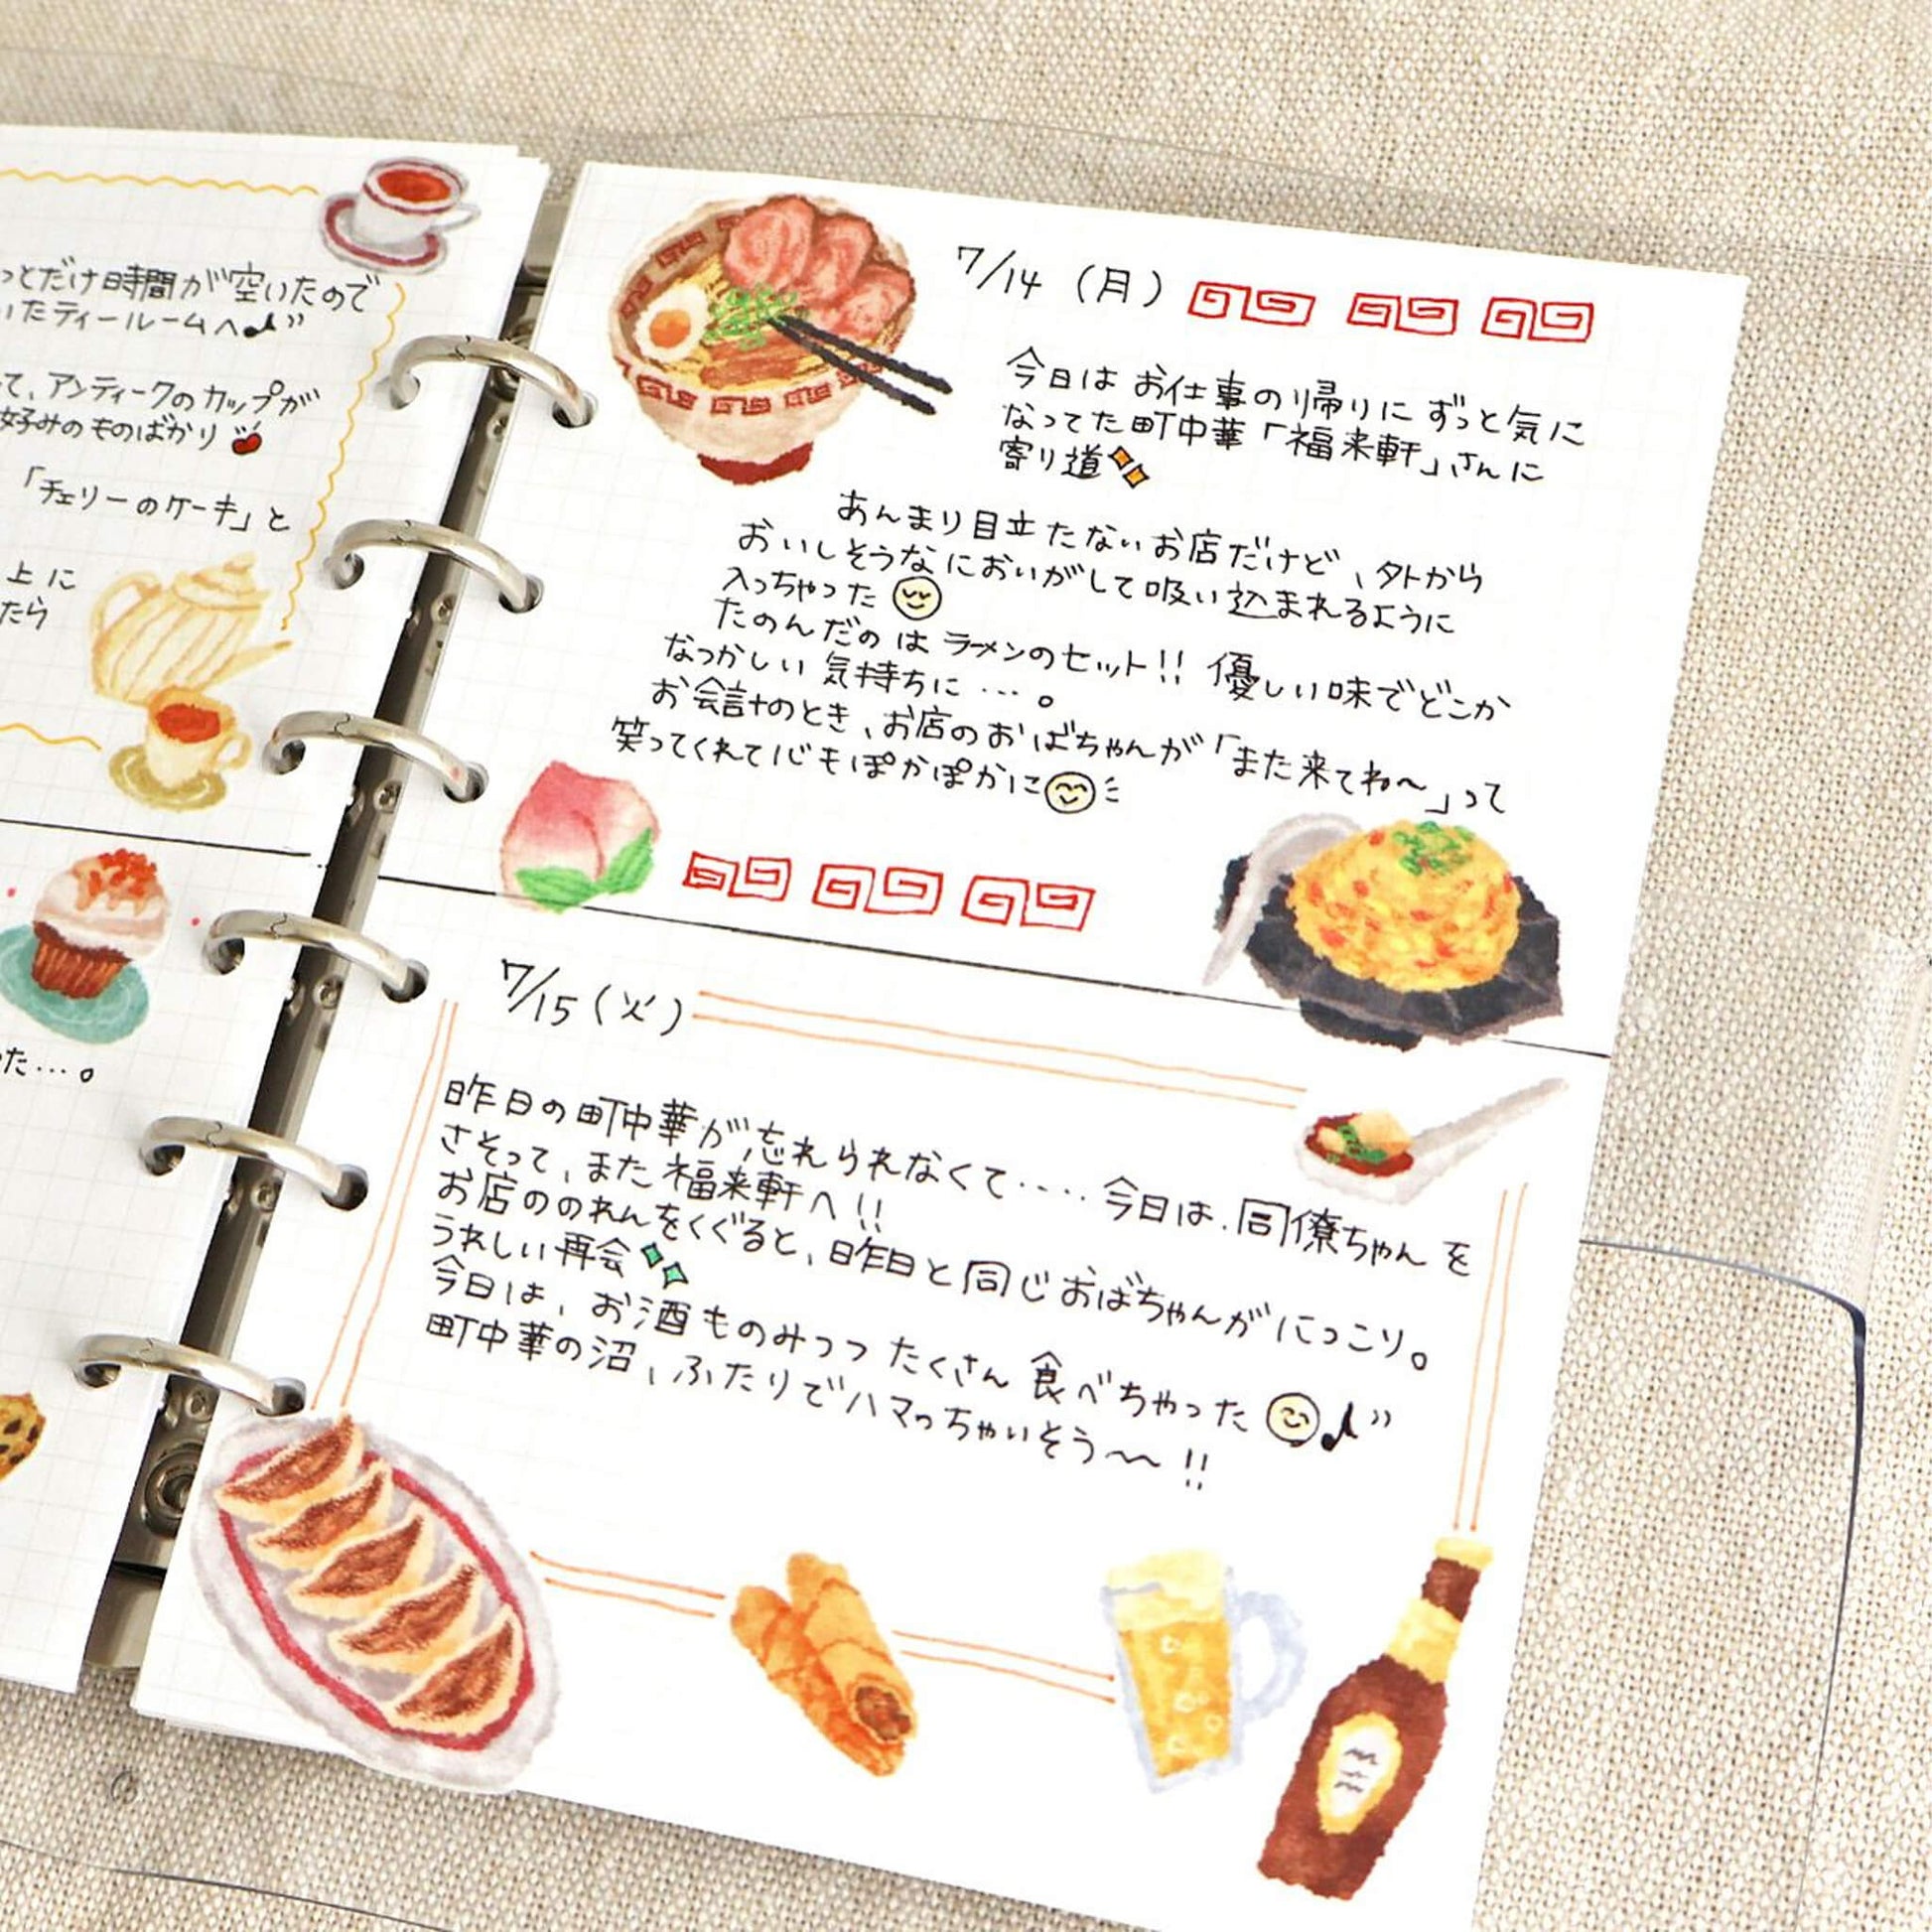 っとだけ時間が空いたので
いたティールームへ♪
て、アンティークのカップが
好みのものばかり
「チェリーのケーキ」と
上に
たら
った…。
7/14（月）
今日はお仕事の帰りにずっと気に
なってた町中華「福来軒」さんに
寄り道
あんまり目立たないお店だけど、外から
おいしそうなにおいがして吸い込まれるように
入っちゃった
たのんだのはラーメンのセット!! 優しい味でどこか
なつかしい気持ちに…。
お会計のとき、お店のおばちゃんが「また来てね〜」って
笑ってくれて心もぽかぽかに
7/15（火）
昨日の町中華が忘れられなくて‥‥今日は、同僚ちゃんを
さそって、また福来軒へ!!
お店ののれんをくぐると、昨日と同じおばちゃんがにっこり。
うれしい再会
今日は、お酒ものみつつたくさん食べちゃった♪
町中華の沼、ふたりでハマっちゃいそう〜〜!!